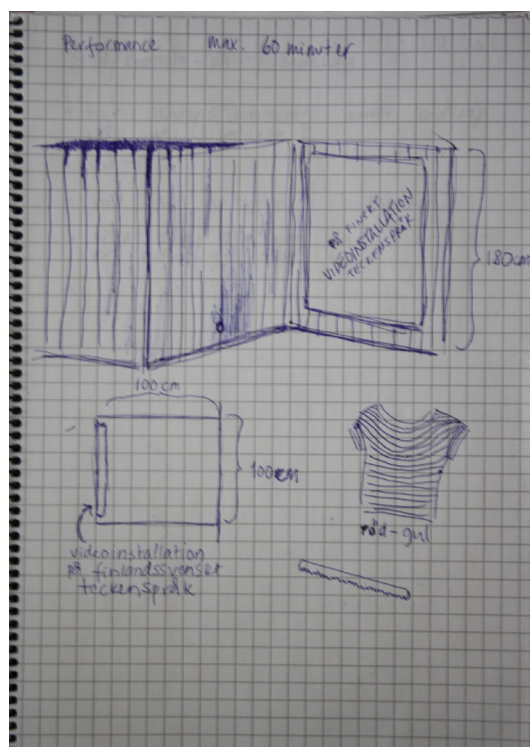 Performance max. 60 minuter
VIDEOINSTALLATION
TECKENSPRÅK
180cm
100cm
100cm
videoinstallation
på finlandssvenset
teckenspråk
röd-gul